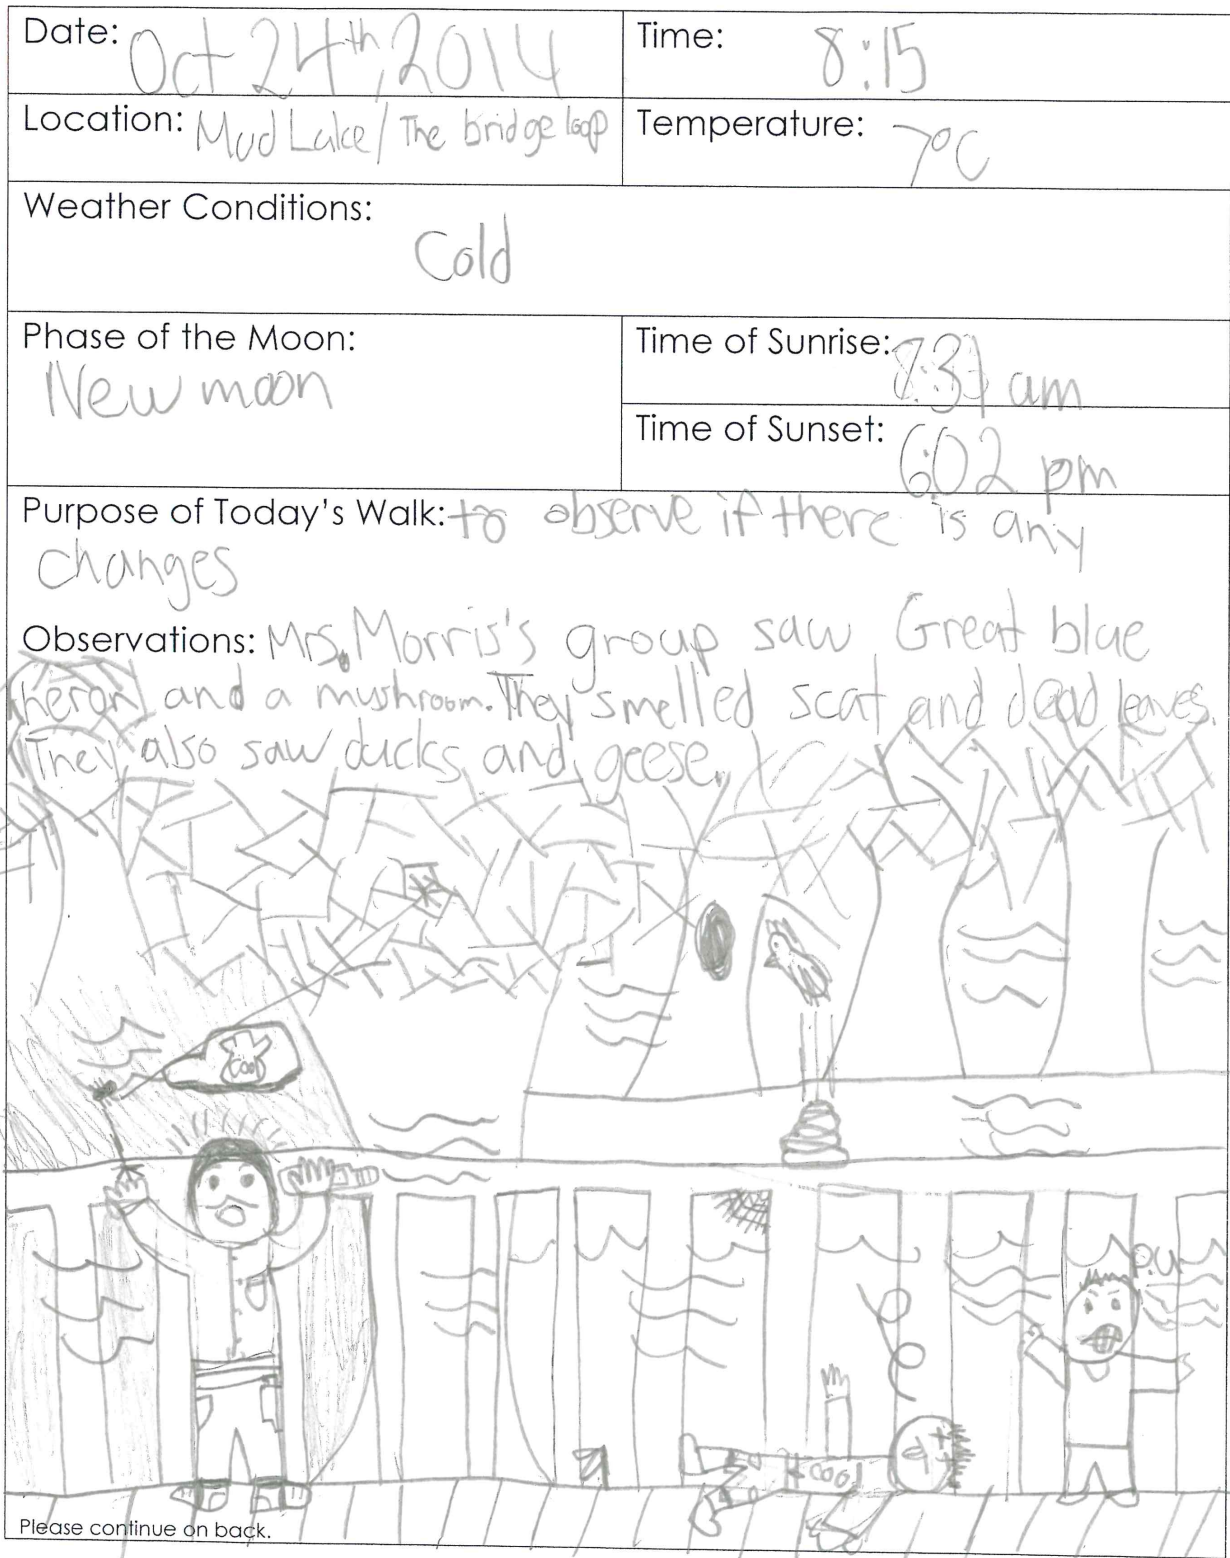 Date: Oct 24th, 2014
Time: 8:15
Location: Mud Lake/The bridge loop
Temperature: 7°C
Weather Conditions:
Cold
Phase of the Moon:
New moon
Time of Sunrise: am
Time of Sunset: 6:02 pm
Purpose of Today's Walk: to observe if there is any
changes
Observations: Mrs. Morris's group saw Great blue
heron and a mushroom. They smelled scat and dead leaves.
They also saw ducks and geese.
Cool
P.U
Cool
Please continue on back.